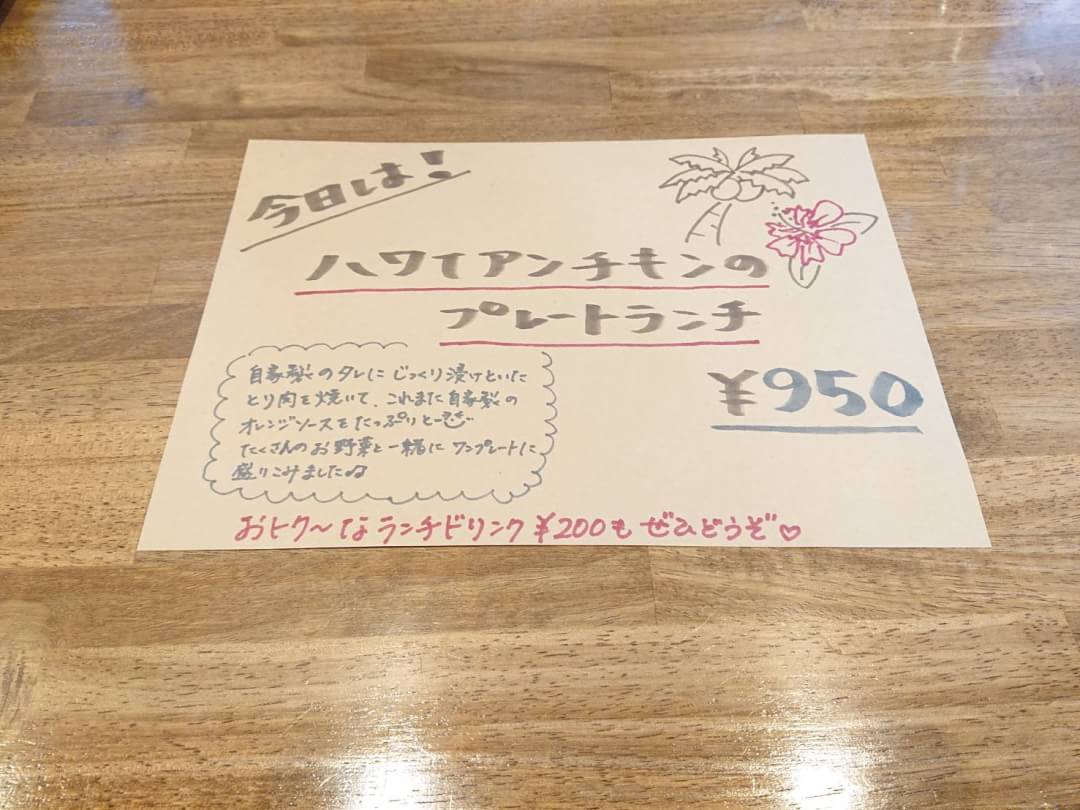 今日は!
ハワイアンチキンの
プレートランチ
自家製のタレにじっくり浸けといた
とり肉を焼いて、これまた自家製の
オレンジソースをたっぷりとー
たくさんのお野菜と一緒にワンプレートに
盛りこみました♫
¥950
おトク〜なランチドリンク¥200もぜひどうぞ♡